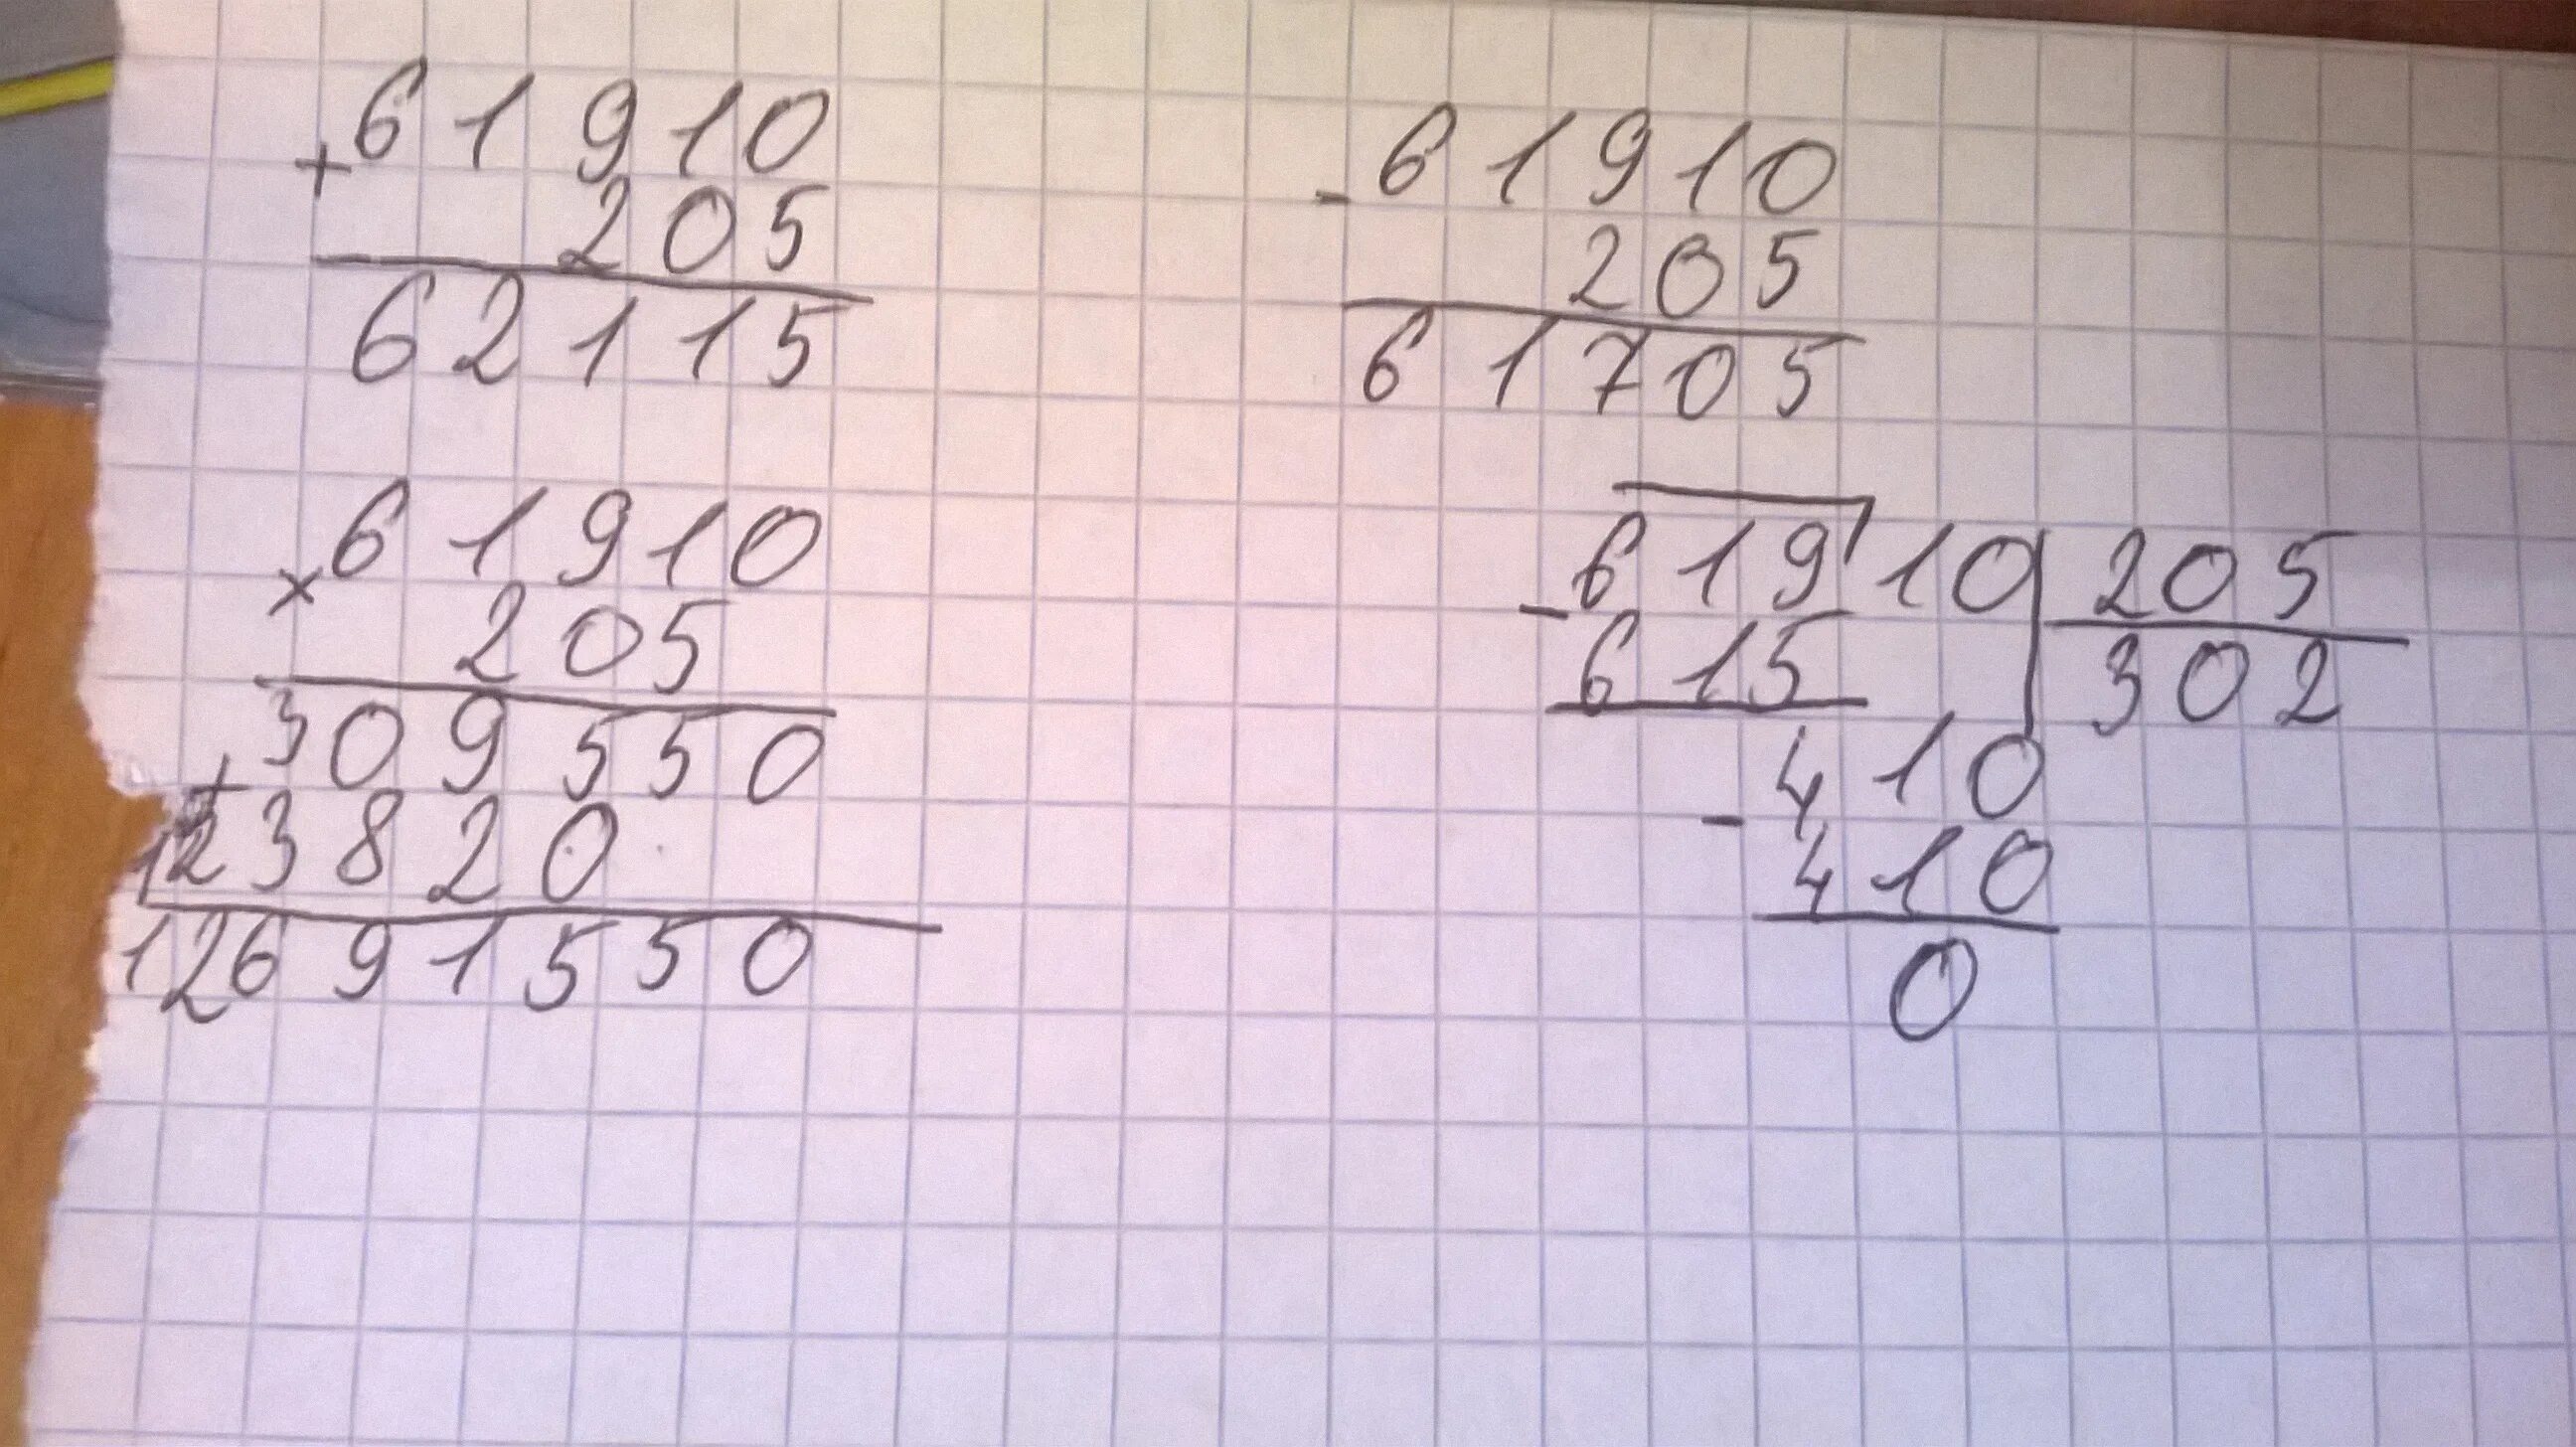 + 61910
205
62115
- 61910
205
61705
× 61910
205
309550
+
123820
12691550
- 61910 205
615 302
410
- 410
0